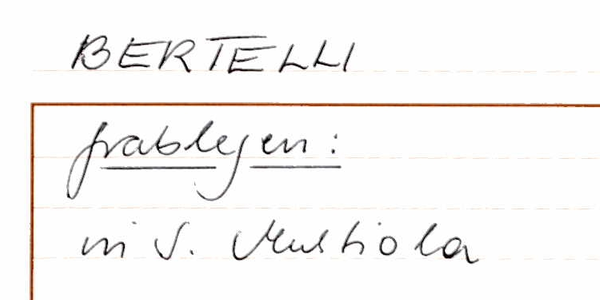 BERTELLI
Grablegen:
in S. Mustiola